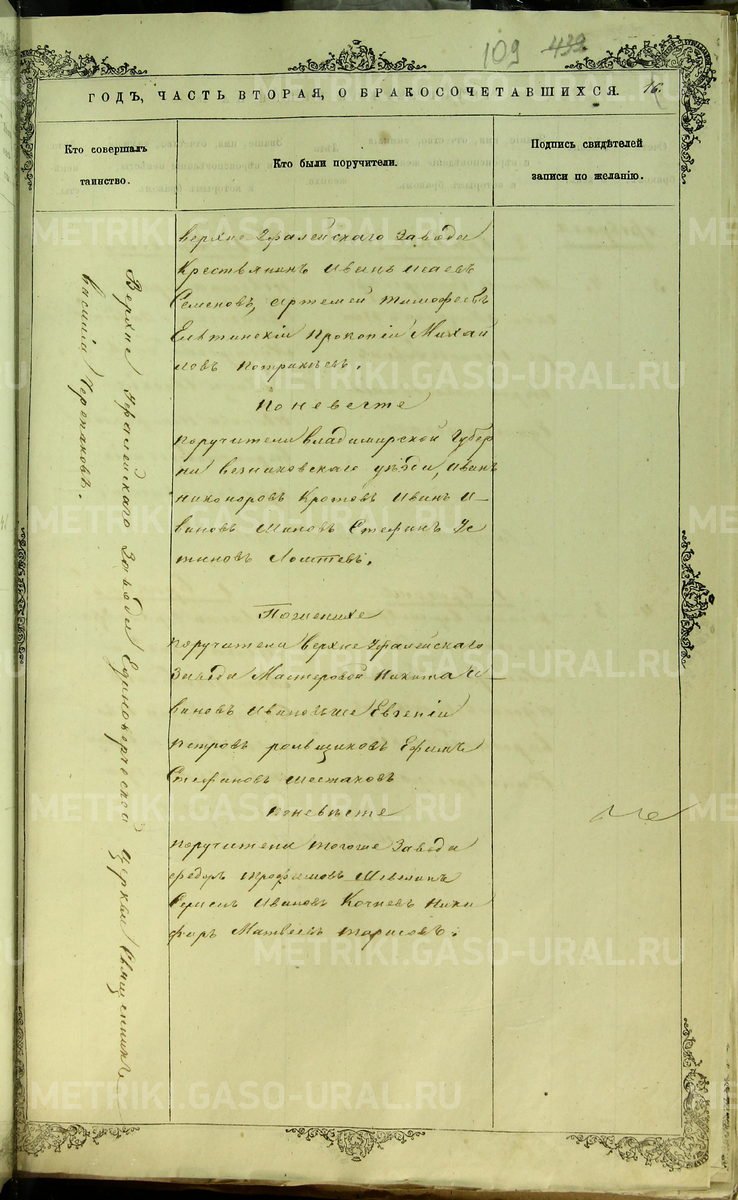 109 439
ГОДЪ, ЧАСТЬ ВТОРАЯ, О БРАКОСОЧЕТАВШИХСЯ.
16.
Кто совершалъ
таинство.
Кто были поручители.
Подпись свидѣтелей
записи по желанію.
Верхне Уфалейскаго Завода Единоверческой Церкви Священникъ
Василій Черепановъ.
Верхне Уфалейскаго Завода
Крестьянинъ Иванъ Исаевъ
Семеновъ, Артемей Тимофеевъ
Прокопій Михай
ловъ
По невесте
поручители Владимирской Губер
ни Везниковскаго уѣзда, Иванъ
Никоноровъ Кротовъ Иванъ И-
вановъ Стефанъ Ус
тиновъ
По женихе
поручители Верхне Уфалейскаго
Завода Мастеровой Никита И-
вановъ Евгеній
Петровъ Ефимъ
Стефановъ Шестаковъ
По невѣсте
поручители тогоже Завода
Федоръ Трофимовъ
Ивановъ Ники
форъ Матвеевъ
METRIKI.GASO-URAL.RU